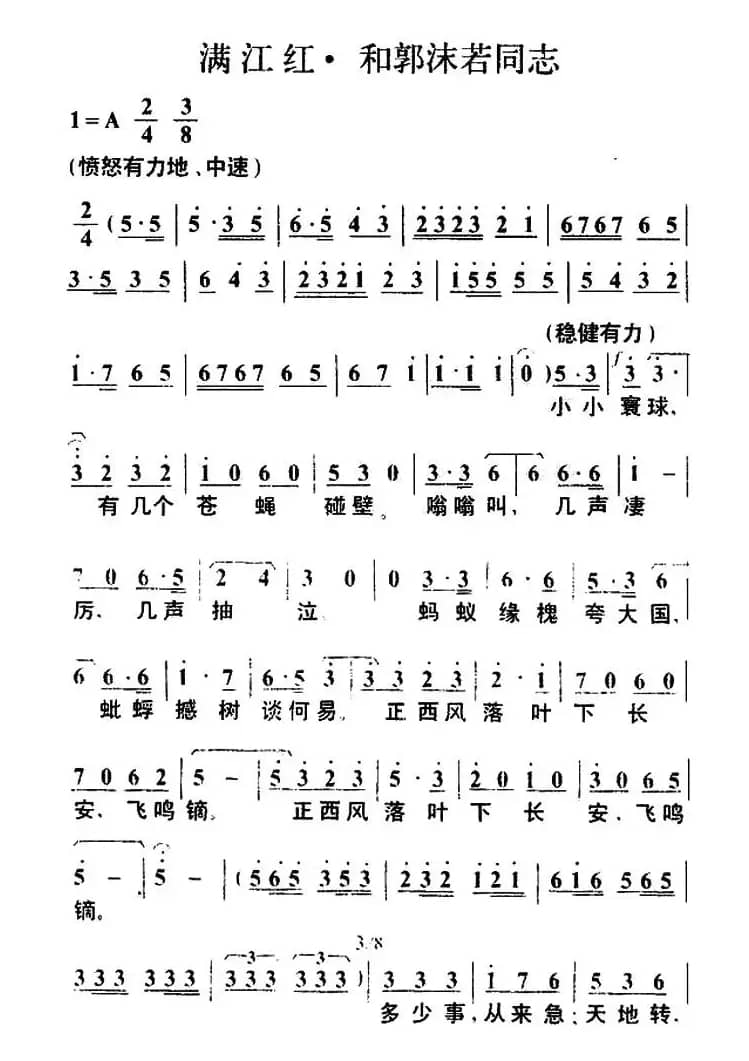 满江红·和郭沫若同志
1=A 2/4 3/8
(愤怒有力地、中速)
2/4 (5·5 | 5·3 5 | 6·5 4 3 | 2323 2 1 | 6767 6 5 |
3·5 3 5 | 6 4 3 | 2321 2 3 | 155 5 5 | 5 4 3 2 |
(稳健有力)
1·7 6 5 | 6767 6 5 | 6 7 1 | 1·1 1 | 0 )5·3 | 3 3· |
小小寰球、
3 2 3 2 | 1 0 6 0 | 5 3 0 | 3·3 6 | 6 6·6 | 1 - |
有几个苍蝇碰壁。嗡嗡叫，几声凄
7 0 6·5 | 2 4 | 3 0 0 | 0 3·3 | 6·6 | 5·3 6 |
厉、几声抽泣 蚂蚁缘槐夸大国、
6 6·6 | 1·7 | 6·5 3 | 3 3 2 3 | 2·1 | 7 0 6 0 |
蚍蜉撼树谈何易。正西风落叶下长
7 0 6 2 | 5 - | 5 3 2 3 | 5·3 | 2 0 1 0 | 3 0 6 5 |
安、飞鸣镝。正西风落叶下长安、飞鸣
5 - | 5 - | (565 353 | 232 121 | 616 565 |
镝。
3/8
333 333 | 333 333 ) | 3 3 3 | 1 7 6 | 5 3 6 |
多少事，从来急；天地转.